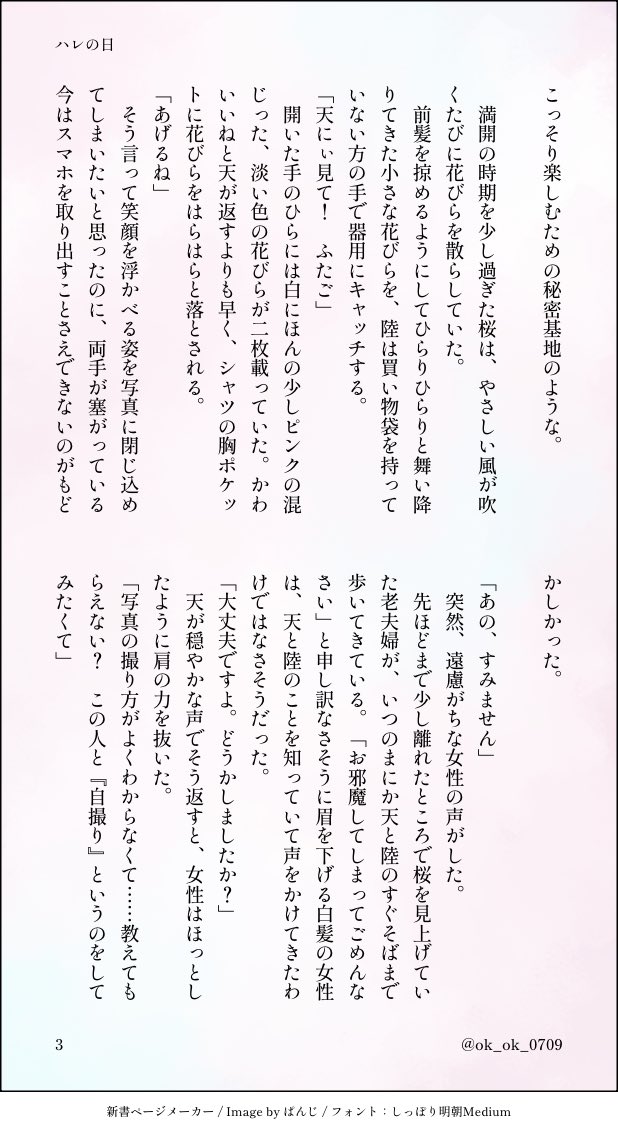 ハレの日
こっそり楽しむための秘密基地のような。
　満開の時期を少し過ぎた桜は、やさしい風が吹
くたびに花びらを散らしていた。
　前髪を掠めるようにしてひらりひらりと舞い降
りてきた小さな花びらを、陸は買い物袋を持って
いない方の手で器用にキャッチする。
「天にぃ見て！　ふたご」
　開いた手のひらには白にほんの少しピンクの混
じった、淡い色の花びらが二枚載っていた。かわ
いいねと天が返すよりも早く、シャツの胸ポケッ
トに花びらをはらはらと落とされる。
「あげるね」
　そう言って笑顔を浮かべる姿を写真に閉じ込め
てしまいたいと思ったのに、両手が塞がっている
今はスマホを取り出すことさえできないのがもど
かしかった。
「あの、すみません」
　突然、遠慮がちな女性の声がした。
　先ほどまで少し離れたところで桜を見上げてい
た老夫婦が、いつのまにか天と陸のすぐそばまで
歩いてきている。「お邪魔してしまってごめんな
さい」と申し訳なさそうに眉を下げる白髪の女性
は、天と陸のことを知っていて声をかけてきたわ
けではなさそうだった。
「大丈夫ですよ。どうかしましたか？」
　天が穏やかな声でそう返すと、女性はほっとし
たように肩の力を抜いた。
「写真の撮り方がよくわからなくて……教えても
らえない？　この人と『自撮り』というのをして
みたくて」
3
@ok_ok_0709
新書ページメーカー / Image by ぱんじ / フォント：しっぽり明朝Medium